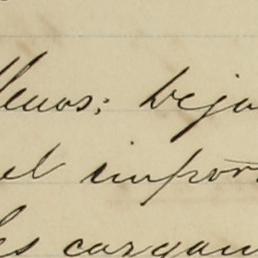 llenos; bejo
el impor
les cargan